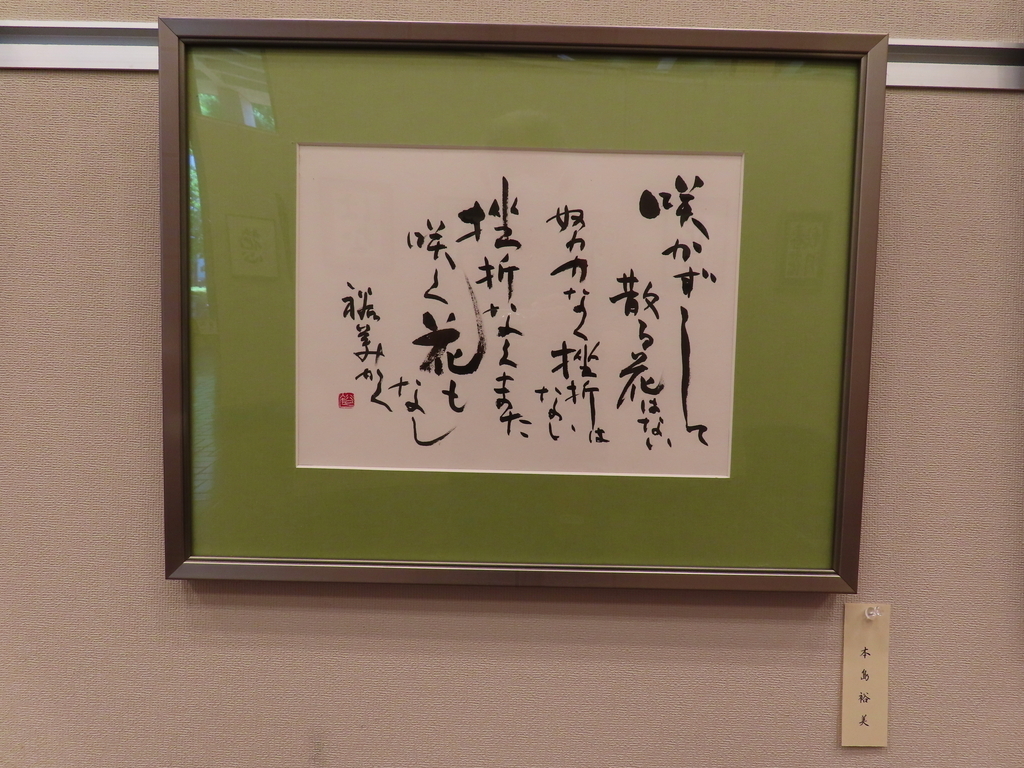 咲かずして
散る花はない
努力なく挫折は
ない
挫折なくまた
咲く花も
なし
裕美かく
本島裕美